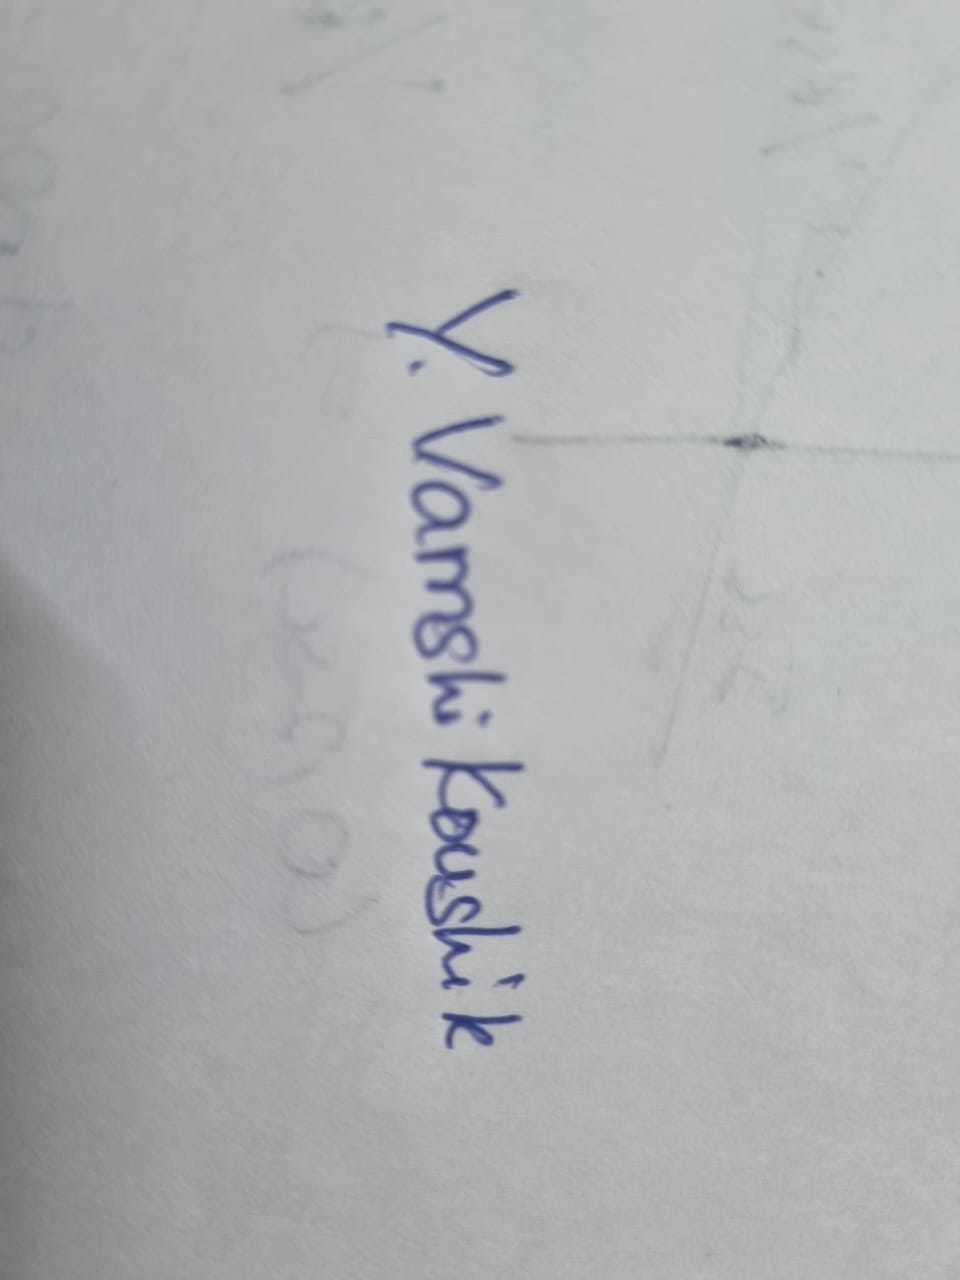 Y. Vamshi Koushik